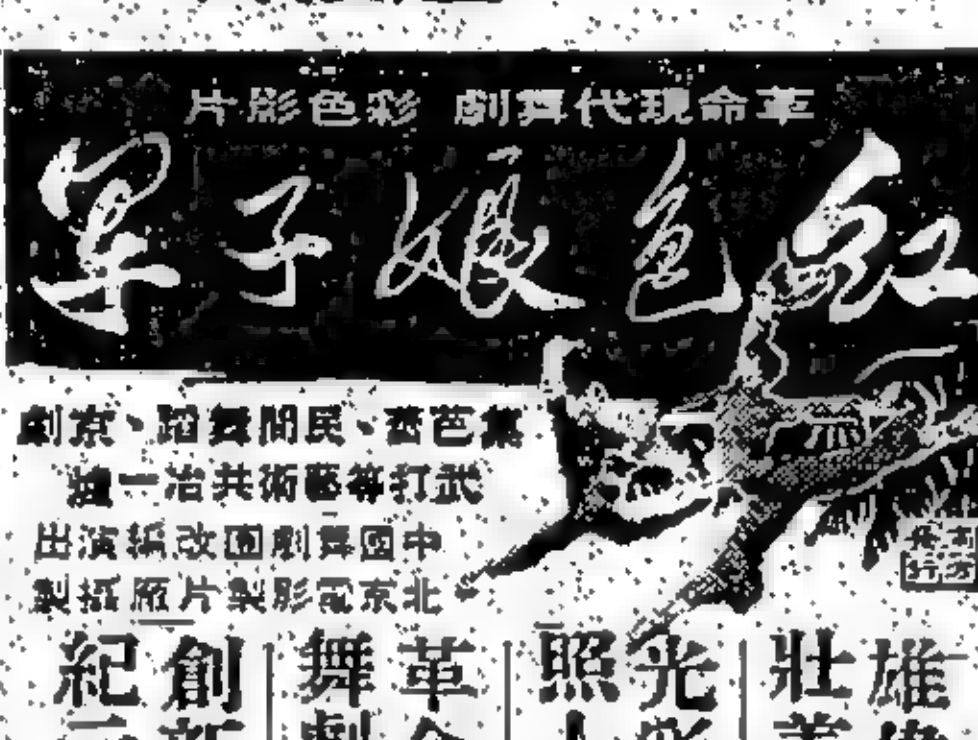 革命現代舞劇 彩色影片
紅色娘子軍
集芭蕾、民間舞蹈、京劇
武打等藝術共冶一爐
中國舞劇團改編演出
北京電影製片廠攝製
雄
壯
光
照
革
舞
創
紀